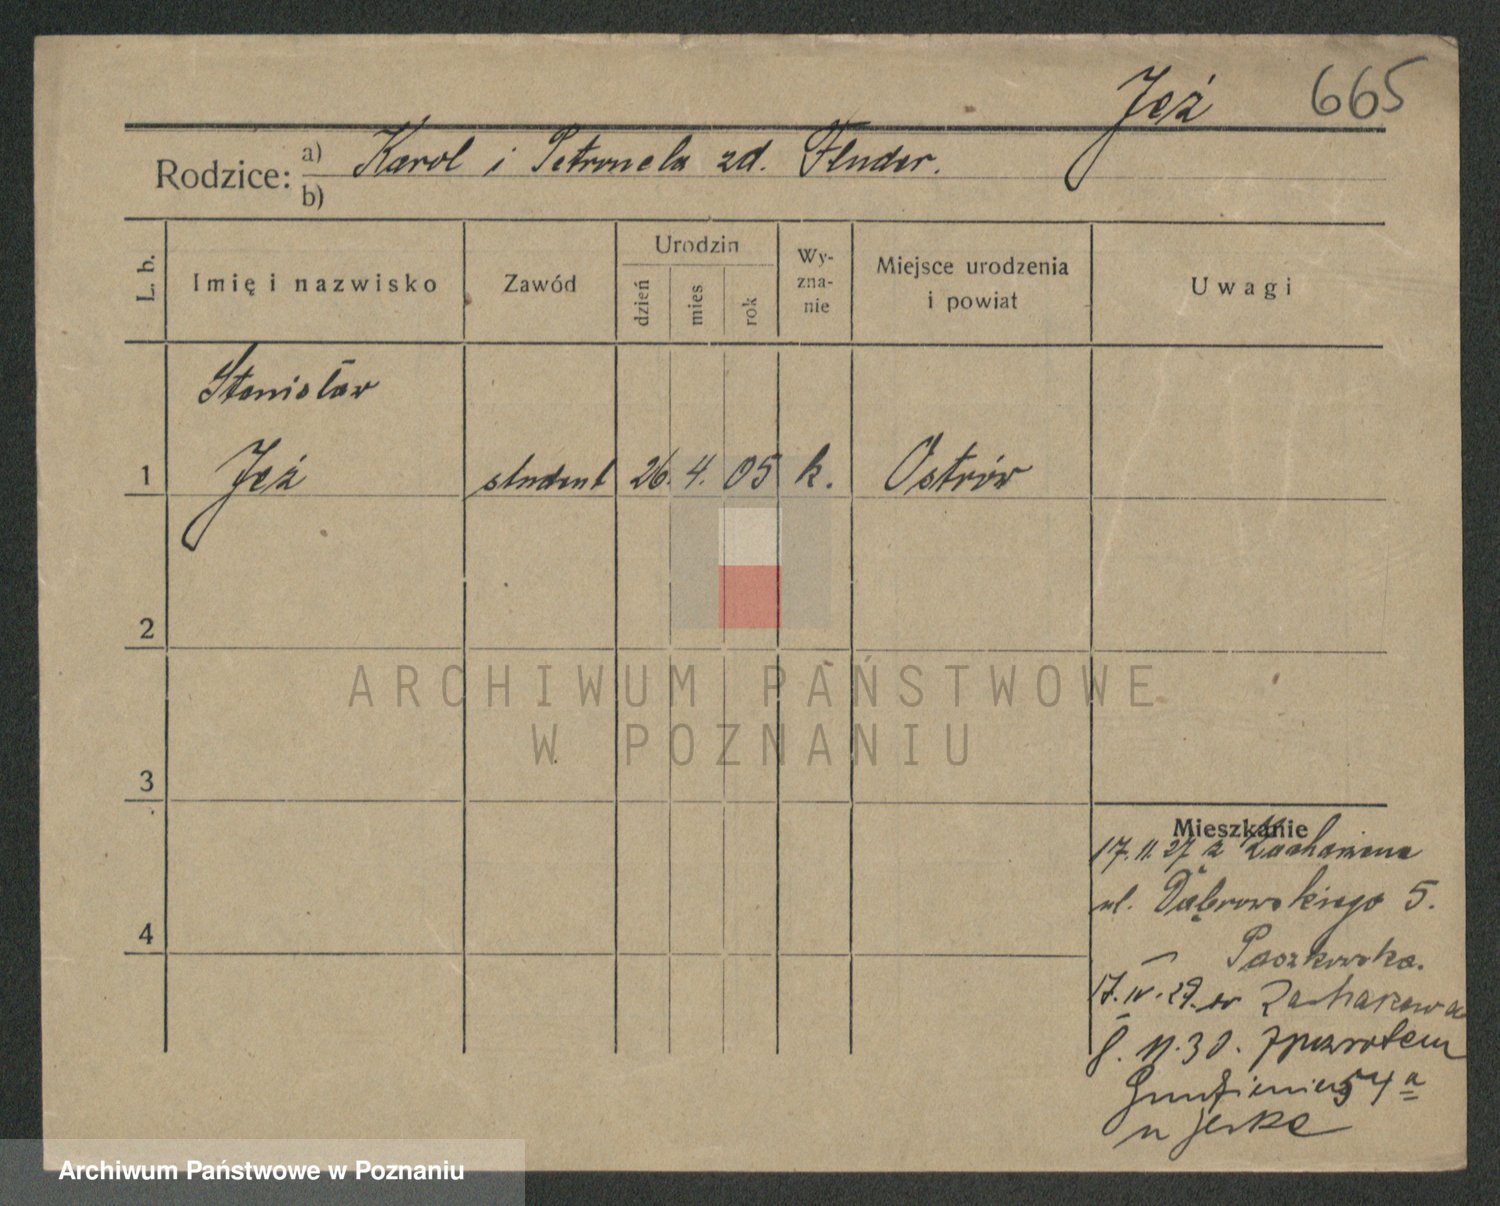 Jeż 665
Rodzice: a) Karol i Petronela zd. Fluder.
b)
L. b. Imię i nazwisko Zawód Urodzin dzień mies rok Wy-zna-nie Miejsce urodzenia i powiat Uwagi
Stanisław
1 Jeż student 26. 4. 05 k. Ostrów
2
ARCHIWUM PAŃSTWOWE
W POZNANIU
3
Mieszkanie
17. 11. 27 z
ul. Dąbrowskiego 5.
4
Paczkowska.
17. IV. 29.
30.
54 a
u
Archiwum Państwowe w Poznaniu